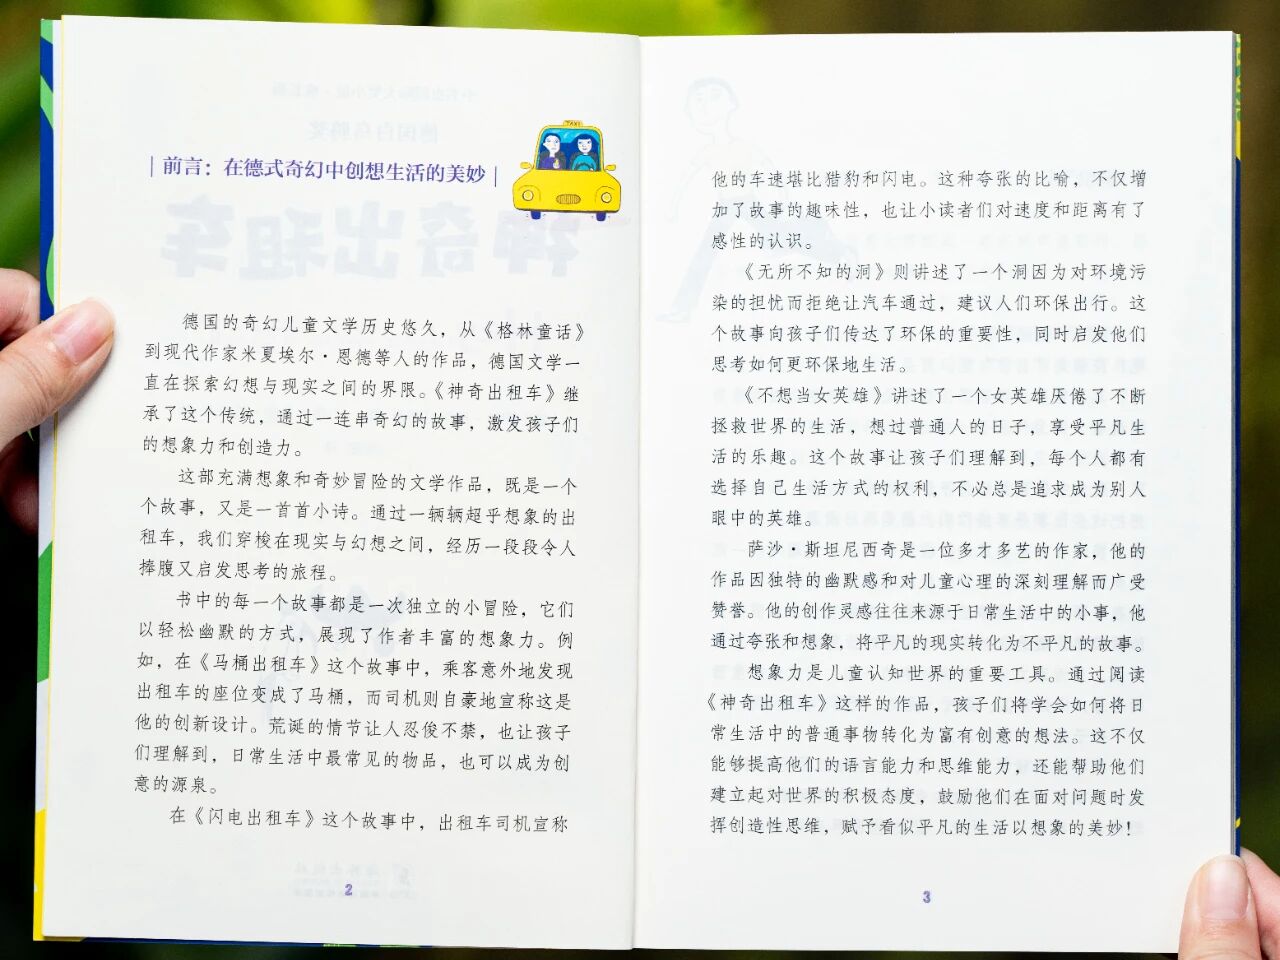 TAXI
前言：在德式奇幻中创想生活的美妙
德国的奇幻儿童文学历史悠久，从《格林童话》
到现代作家米夏埃尔·恩德等人的作品，德国文学一
直在探索幻想与现实之间的界限。《神奇出租车》继
承了这个传统，通过一连串奇幻的故事，激发孩子们
的想象力和创造力。
这部充满想象和奇妙冒险的文学作品，既是一个
个故事，又是一首首小诗。通过一辆辆超乎想象的出
租车，我们穿梭在现实与幻想之间，经历一段段令人
捧腹又启发思考的旅程。
书中的每一个故事都是一次独立的小冒险，它们
以轻松幽默的方式，展现了作者丰富的想象力。例
如，在《马桶出租车》这个故事中，乘客意外地发现
出租车的座位变成了马桶，而司机则自豪地宣称这是
他的创新设计。荒诞的情节让人忍俊不禁，也让孩子
们理解到，日常生活中最常见的物品，也可以成为创
意的源泉。
在《闪电出租车》这个故事中，出租车司机宣称
2
他的车速堪比猎豹和闪电。这种夸张的比喻，不仅增
加了故事的趣味性，也让小读者们对速度和距离有了
感性的认识。
《无所不知的洞》则讲述了一个洞因为对环境污
染的担忧而拒绝让汽车通过，建议人们环保出行。这
个故事向孩子们传达了环保的重要性，同时启发他们
思考如何更环保地生活。
《不想当女英雄》讲述了一个女英雄厌倦了不断
拯救世界的生活，想过普通人的日子，享受平凡生
活的乐趣。这个故事让孩子们理解到，每个人都有
选择自己生活方式的权利，不必总是追求成为别人
眼中的英雄。
萨沙·斯坦尼西奇是一位多才多艺的作家，他的
作品因独特的幽默感和对儿童心理的深刻理解而广受
赞誉。他的创作灵感往往来源于日常生活中的小事，他
通过夸张和想象，将平凡的现实转化为不平凡的故事。
想象力是儿童认知世界的重要工具。通过阅读
《神奇出租车》这样的作品，孩子们将学会如何将日
常生活中的普通事物转化为富有创意的想法。这不仅
能够提高他们的语言能力和思维能力，还能帮助他们
建立起对世界的积极态度，鼓励他们在面对问题时发
挥创造性思维，赋予看似平凡的生活以想象的美妙！
3